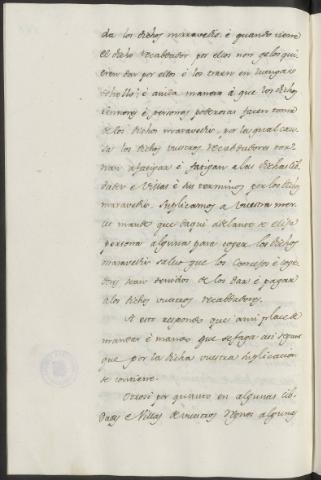 da los dichos maravedis é quando viene
el dicho recabdador por ellos non gelos qui-
eren dar por ellos é los traen en luengas é
é aun manera á que los dichos
Señores é personas poderosas facen toma
de los dichos maravedis, por la qual cau-
sa los dichos vuestros recabdadores tor-
nan a fatigar é fatigan a las dichas Cib-
dades é Villas é sus terminos por los dichos
maravedis. Suplicamos a Vuestra mer-
ced mande que daqui adelante se elija
persona alguna para coger los dichos
maravedis salvo que los Concejos é coge-
dores sean tenidos de los dar é pagar
a los dichos vuestros recabdadores.
A esto respondo que a mi place de
mandar é mando que se faga asi segunt
que por la dicha vuestra suplicacion
se contiene.
Otrosi por quanto en algunas Cib-
dades e Villas de vuestros regnos algunos